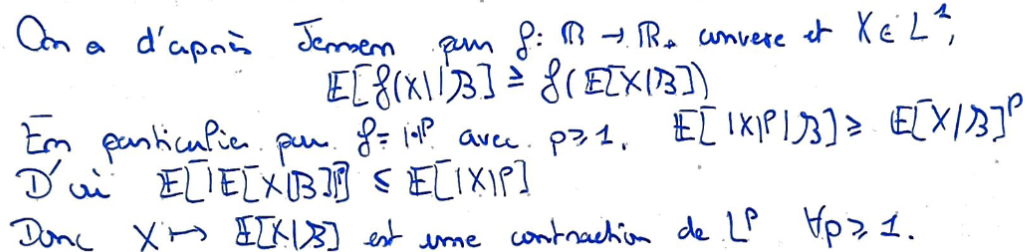 On a d'après Jensen pour f: ℝ → ℝ₊ convexe et X ∈ L¹,
𝔼[f(X)|𝓑] ≥ f(𝔼[X|𝓑])
En particulier pour f = |·|ᵖ avec p ≥ 1, 𝔼[|X|ᵖ|𝓑] ≥ 𝔼[X|𝓑]ᵖ
D'où 𝔼[|𝔼[X|𝓑]|ᵖ] ≤ 𝔼[|X|ᵖ]
Donc X ↦ 𝔼[X|𝓑] est une contraction de Lᵖ ∀p ≥ 1.